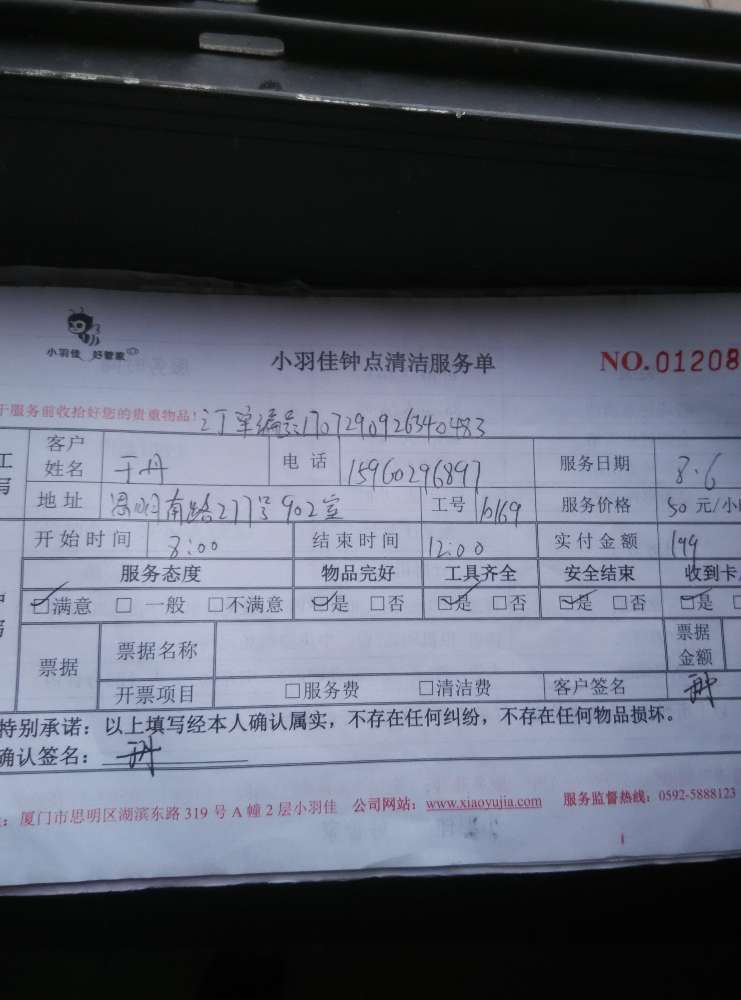 小羽佳 好管家
小羽佳钟点清洁服务单
NO.01208
于服务前收拾好您的贵重物品！订单编号1707290926340483
客户姓名 于丹 电话 15960296897 服务日期 8.6
地址 思明南路277号902室 工号 10169 服务价格 50元/小
开始时间 8:00 结束时间 12:00 实付金额 199
服务态度 物品完好 工具齐全 安全结束 收到卡
☑满意 □一般 □不满意 ☑是 □否 ☑是 □否 ☑是 □否 ☑是 □
票据 票据名称 票据金额
开票项目 □服务费 □清洁费 客户签名 于丹
特别承诺：以上填写经本人确认属实，不存在任何纠纷，不存在任何物品损坏。
确认签名：于丹
：厦门市思明区湖滨东路319号A幢2层小羽佳 公司网站：www.xiaoyujia.com 服务监督热线：0592-5888123